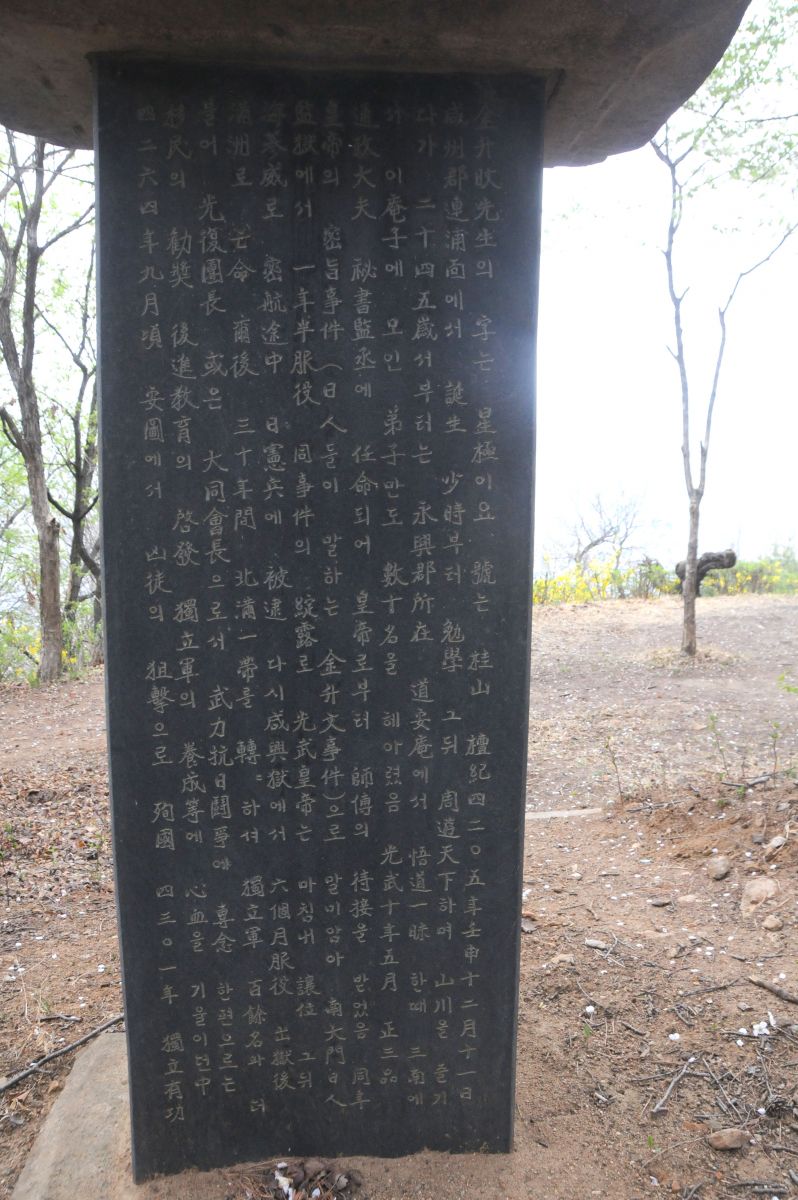 金升旼先生의 字는 星極이요 號는 桂山 檀紀四二○五年壬申十二月十一日
咸州郡連浦面에서 誕生 少時부터 勉學 그뒤 周遊天下하며 山川을 즐기
다가 二十四五歲서부터는 永興郡所在 道安庵에서 悟道一昧 한때 三南에
가 이庵子에 모인 弟子만도 數十名을 헤아렸음 光武十年五月 正三品
通政大夫 秘書監丞에 任命되어 皇帝로부터 師傅의 待接을 받았음 同年
皇帝의 密旨事件(日人들이 말하는 金升文事件)으로 말미암아 南大門日人
監獄에서 一年半服役 同事件의 綻露로 光武皇帝는 마침내 讓位 그뒤
海蔘威로 密航途中 日憲兵에 被逮 다시咸興獄에서 六個月服役 出獄後
滿洲로 亡命 爾後 三十年間 北滿一帶를 轉〻하셔 獨立軍 百餘名과 더
블어 光復團長 或은 大同會長으로서 武力抗日鬪爭에 專念 한편으르는
移民의 勸奬 後進敎育의 啓發 獨立軍의 養成等에 心血을 기울이던中
四二六四年九月頃 安圖에서 凶徒의 狙擊으로 殉國 四三○一年 獨立有功